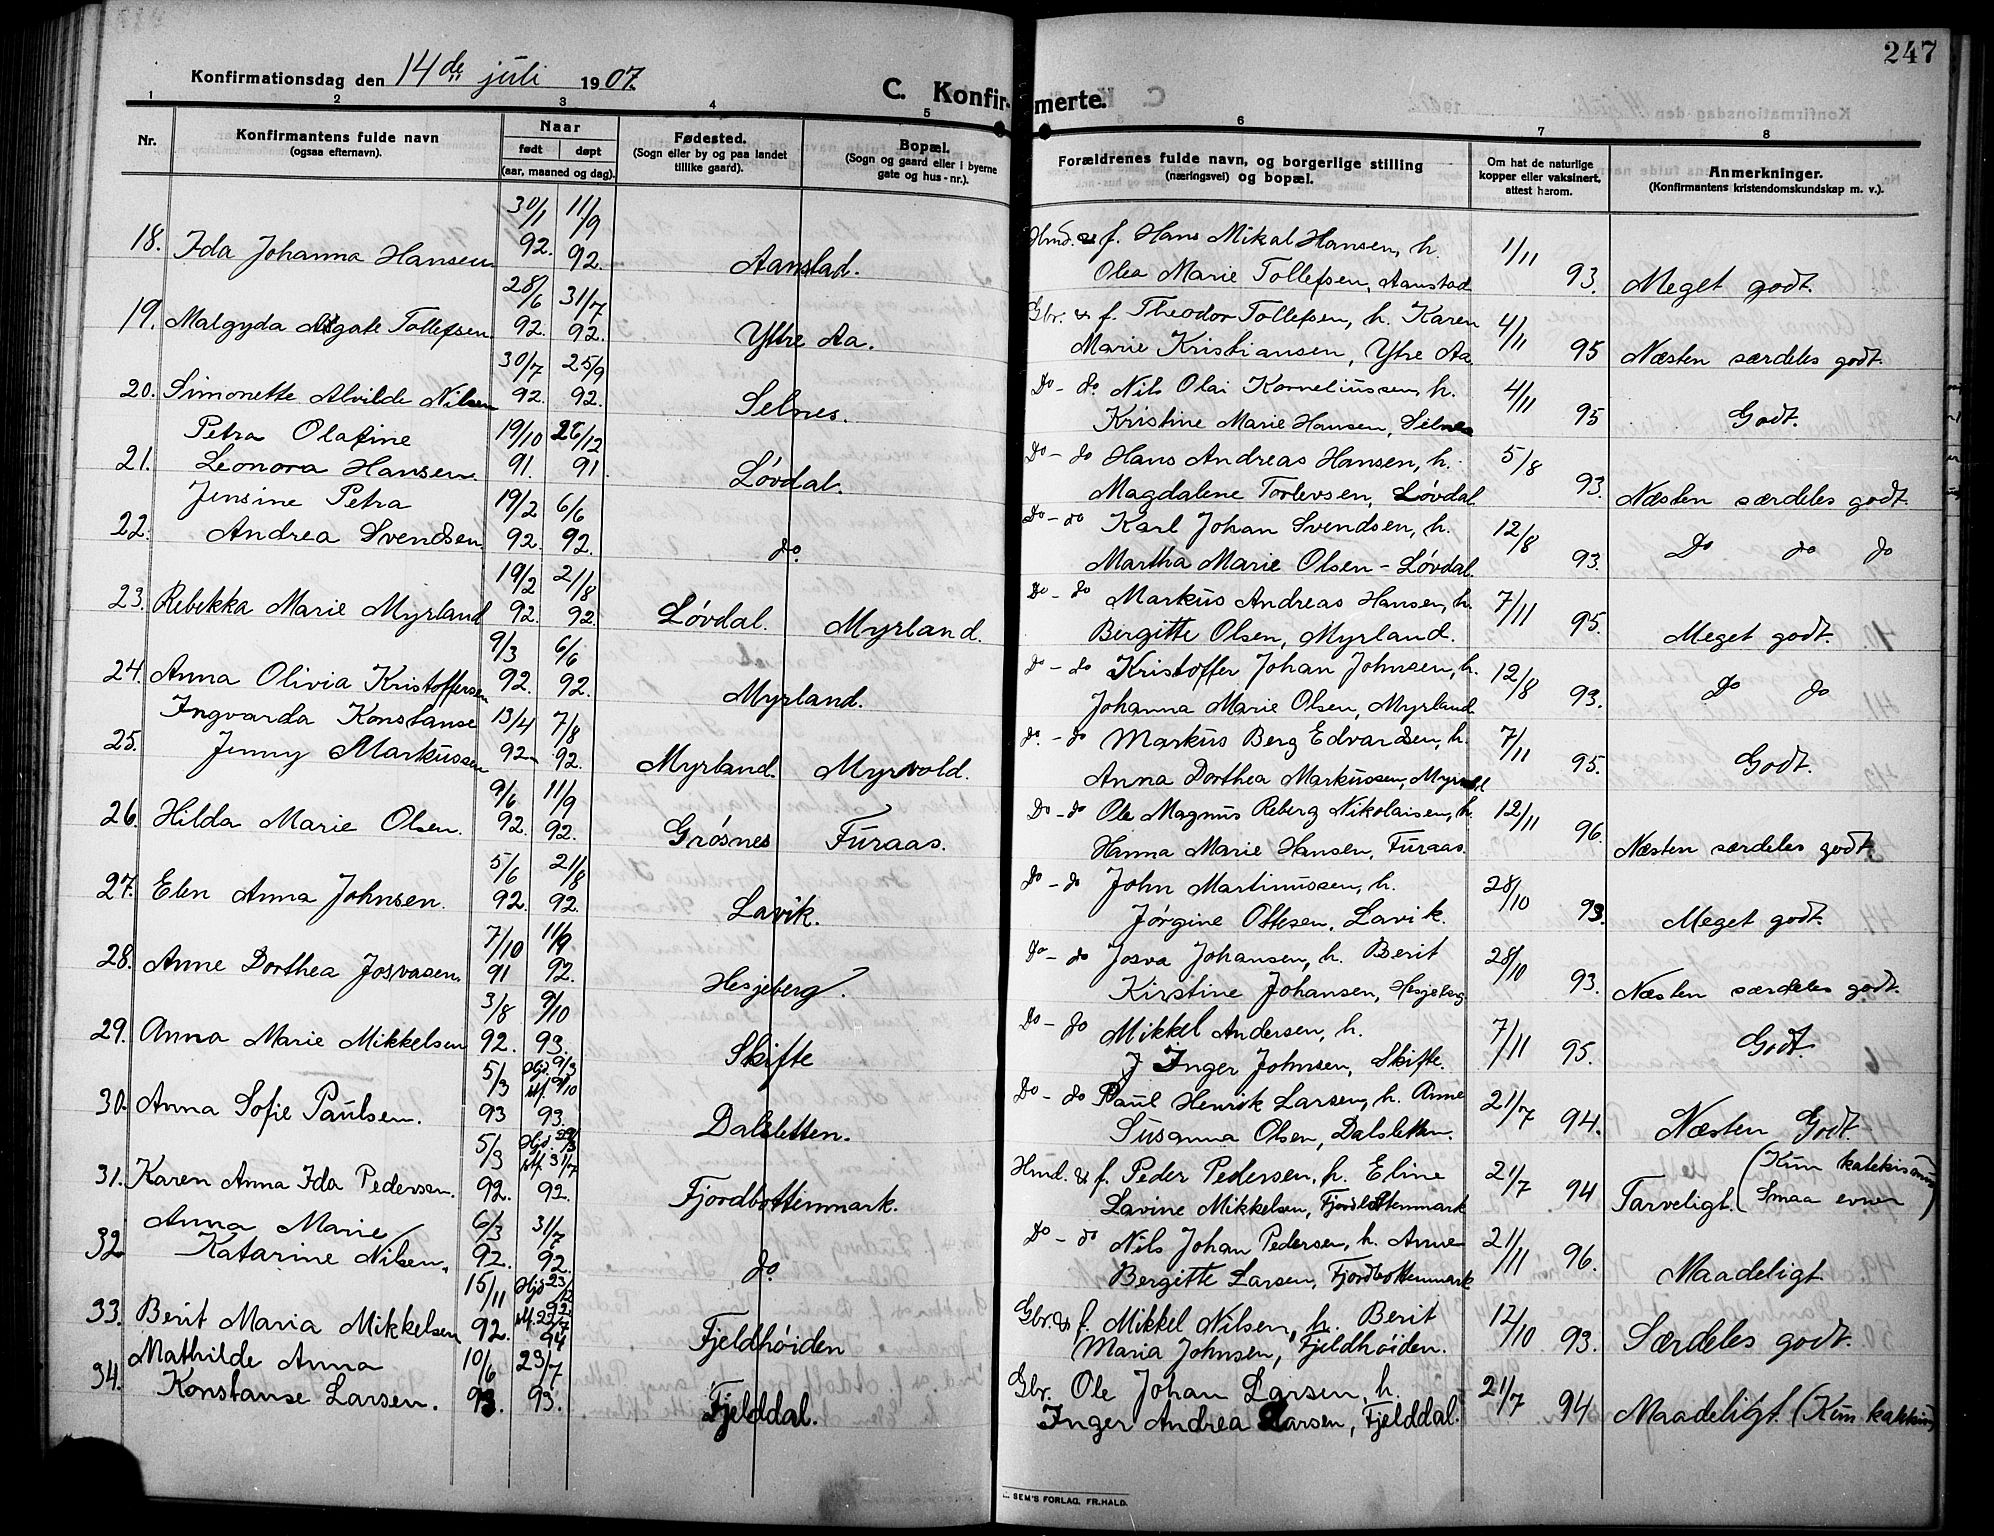 247
Konfirmationsdag den 14de juli 1907.
C. Konfirmerte.
1 2 3 4 5 6 7 8
Nr.
Konfirmantens fulde navn
(ogsaa efternavn).
Naar
født døpt
(aar, maaned og dag).
Fødested.
(Sogn eller by og paa landet
tillike gaard).
Bopæl.
(Sogn og gaard eller i byerne
gate og hus-nr.).
Forældrenes fulde navn, og borgerlige stilling
(næringsvei) og bopæl.
Om hat de naturlige
kopper eller vaksinert,
attest herom.
Anmerkninger.
(Konfirmantens kristendomskundskap m. v.).
18. Ida Johanna Hansen 30/1 92. 11/9 92. Aanstad.
Hmd. & f. Hans Mikal Hansen, h.
Olea Marie Tollefsen, Aanstad 1/11 93. Meget godt.
19. Malgyda Agate Tollefsen. 28/6 92. 31/7 92. Yttre Aa.
Gbr. & f. Theodor Tollefsen, h. Karen
Marie Kristiansen, Ytre Aa 4/11 95 Næsten særdeles godt.
20. Simonette Alvilde Nilsen 30/7 92. 25/9 92. Selnes.
Do - do. Nils Olai Korneliussen, h.
Kristine Marie Hansen, Selnes 4/11 95 Godt.
21. Petra Olafine
Leonora Hansen. 19/10 91. 26/12 91. Løvdal.
Do - do Hans Andreas Hansen, h.
Magdalene Torlevsen, Løvdal 5/8 93. Næsten særdeles godt
22. Jensine Petra
Andrea Svendsen. 19/2 92. 6/6 92. do.
Do - do Karl Johan Svendsen, h.
Martha Marie Olsen - Løvdal. 12/8 93. Do do do
23. Rebekka Marie Myrland 19/2 92. 21/8 92. Løvdal. Myrland.
Do - do Markus Andreas Hansen, h.
Bergitte Olsen, Myrland. 7/11 95. Meget godt.
24. Anna Olivia Kristoffersen 9/3 92. 6/6 92. Myrland.
do - do Kristoffer Johan Johnsen, h.
Johanna Marie Olsen, Myrland. 12/8 93. Do do
25. Ingvarda Konstanse
Jenny Markussen 13/4 92 7/8 92. Myrland. Myrvold.
do. - do Markus Berg Edvardsen, h.
Anna Dorthea Markussen, 7/11 95. Godt.
26. Hilda Marie Olsen. 9/6 92. 11/9 92. Grøsnes Furaas.
Do - do Ole Magnus Reberg Nikolaisen, h.
Hanna Marie Hansen, Furaas. 12/11 96. Næsten særdeles godt
27. Elen Anna Johnsen. 5/6 92. 21/8 92. Lavik.
Do - do John Martinussen, h.
Jørgine Ottesen, Lavik. 28/10 93. Meget godt.
28. Anne Dorthea Josvasen. 7/10 91 11/9 92. Hesjeberg.
do - do Josva Johansen, h. Berit
Kirstine Johansen, Hesjeberg 28/10 93. Næsten særdeles godt.
29. Anna Marie Mikkelsen 3/8 92. 9/10 93. Skifte
Do - do Mikkel Andersen, h.
Inger Johnsen, Skifte. 7/11 95. Godt.
30. Anna Sofie Paulsen. 5/3 93 Hjd. 9/3 stf. 9/10 93. Dalsletten.
Do - do Paul Henrik Larsen, h. Anne
Susanna Olsen, Dalsletten. 21/7 94. Næsten Godt.
31. Karen Anna Ida Pedersen. 5/3 92. Hjd. stf. 31/7 92. Fjordbottenmark.
Hmd. & f. Peder Pedersen, h. Eline
Lavine Mikkelsen, Fjordbottenmark 21/7 94 Tarveligt. (Kun katekismus
Smaa evner)
32 Anna Marie
Katarine Nilsen. 6/3 92. 31/7 92. do.
Do - do Nils Johan Pedersen, h. Anne
Bergitte Larsen, Fjordbottenmark 21/11 96. Maadeligt
33. Berit Maria Mikkelsen 15/11 92. Hjd 23/12 92 stf. 22/7 94 Fjeldhøiden
Gbr. & f. Mikkel Nilsen, h. Berit
Maria Johnsen, Fjeldhøiden. 12/10 93. Særdeles godt.
34. Mathilde Anna
Konstanse Larsen. 10/6 93. 23/7 93. Fjelddal.
Gbr. Ole Johan Larsen, h.
Inger Andrea Larsen, Fjelddal. 21/7 94 Maadeligt. (Kun
SEM'S FORLAG, FR.HALD.